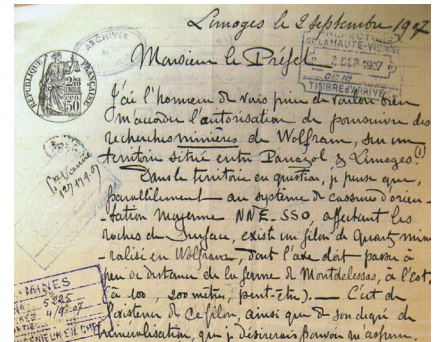 Limoges le 2 septembre 1907
ARCHIVES
PRÉFECTURE
DE LA HAUTE-VIENNE
2 SEP 1907
TIMBRE D'ARRIVÉE
RÉPUBLIQUE FRANÇAISE
50
Monsieur le Préfet
J'ai l'honneur de vous prier de vouloir bien
m'accorder l'autorisation de poursuivre des
recherches minières de Wolfram, sur un
territoire situé entre Panazol & Limoges (1)
Dans le territoire en question, je pense que,
parallèlement au système de cassures d'orien-
-tation moyenne NNE-SSO, affectant les
roches de Surface, existe un filon de Quartz miné
-ralisé en Wolfram, dont l'axe doit passer à
peu de distance de la ferme de Montdelessas, à l'Est,
(à 100, 200 mètres, peut-être). — C'est de
l'existence de ce filon, ainsi que de son degré de
minéralisation, que je désirerais pouvoir m'assurer.
MINES
5225
4/9/07
INGÉNIEUR EN CHEF